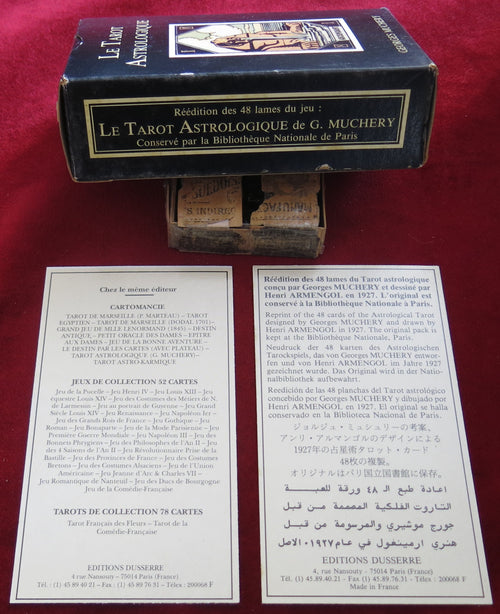 LE TAROT
ASTROLOGIQUE
GEORGES MUCHERY
Réédition des 48 lames du jeu :
LE TAROT ASTROLOGIQUE de G. MUCHERY
Conservé par la Bibliothèque Nationale de Paris
SUEDOIS
ORIGINI S.
MANUFAC
Chez le même éditeur
CARTOMANCIE
TAROT DE MARSEILLE (P. MARTEAU) – TAROT
EGYPTIEN – TAROT DE MARSEILLE (DODAL 1701)–
GRAND JEU DE MLLE LENORMAND (1845) – DESTIN
ANTIQUE – PETIT ORACLE DES DAMES – EPITRE
AUX DAMES – JEU DE LA BONNE AVENTURE –
LE DESTIN PAR LES CARTES (AVEC PLATEAU) –
TAROT ASTROLOGIQUE (G. MUCHERY)–
TAROT ASTRO-KARMIQUE
JEUX DE COLLECTION 52 CARTES
Jeu de la Pucelle – Jeu Henri IV – Jeu Louis XIII – Jeu
équestre Louis XIV – Jeu des Costumes des Métiers de N.
de Larmessin – Jeu au portrait de Guyenne – Jeu Grand
Siècle Louis XIV – Jeu Renaissance – Jeu Napoléon Ier –
Jeu des Grands Rois de France – Jeu Gothique – Jeu
Roman – Jeu Bonaparte – Jeu de la Mode Parisienne – Jeu
Première Guerre Mondiale – Jeu Napoléon III – Jeu des
Bonnets Phrygiens – Jeu des Philosophes de l'An II – Jeu
des 4 Saisons de l'An II – Jeu Révolutionnaire Prise de la
Bastille – Jeu des Provinces de France – Jeu des Costumes
Bretons – Jeu des Costumes Alsaciens – Jeu de l'Union
Américaine – Jeu Jeanne d'Arc & Charles VII –
Jeu Romantique de Nanteuil – Jeu des Ducs de Bourgogne
Jeu de la Comédie-Française
TAROTS DE COLLECTION 78 CARTES
Tarot Français des Fleurs – Tarot de la
Comédie-Française
EDITIONS DUSSERRE
4 rue Nansouty – 75014 Paris (France)
Tél. : (1) 45.89.40.21 – Fax : (1) 45 89 76 31 – Télex : 200068 F
Réédition des 48 lames du Tarot astrologique
conçu par Georges MUCHERY et dessiné par
Henri ARMENGOL en 1927. L'original est
conservé à la Bibliothèque Nationale à Paris.
Reprint of the 48 cards of the Astrological Tarot
designed by Georges MUCHERY and drawn by
Henri ARMENGOL in 1927. The original pack is
kept at the Bibliothèque Nationale, Paris.
Neudruck der 48 karten des Astrologischen
Tarockspiels, das von Georges MUCHERY entwor-
fen und von Henri ARMENGOL im Jahre 1927
gezeichnet wurde. Das Original wird in der Natio-
nalbibliothek aufbewahrt.
Reedición de las 48 planchas del Tarot astrológico
concebido por Georges MUCHERY y dibujado por
Henri ARMENGOL en 1927. El original se halla
conservado en la Biblioteca Nacional de Paris.
ジョルジュ・ミュシュリーの考案、
アンリ・アルマンゴルのデザインによる
1927年の占星術タロット・カード
48枚の複製。
オリジナルはパリ国立図書館に保存。
اعادة طبع الـ ٤٨ ورقة للعبة
التاروت الفلكية المصممة من قبل
جورج موشيري والمرسومة من قبل
هنري ارمينغول في عام ١٩٢٧ الاصل
EDITIONS DUSSERRE
4, rue Nansouty - 75014 Paris (France)
Tél. (1) 45.89.40.21 - Fax (1) 45.89.76.31 - Télex : 200068 F
Made in France